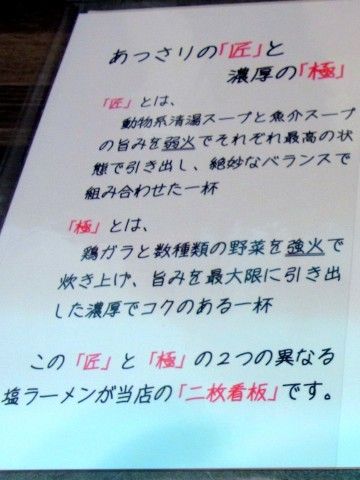 あっさりの「匠」と
濃厚の「極」
「匠」とは、
動物系清湯スープと魚介スープ
の旨みを弱火でそれぞれ最高の状
態で引き出し、絶妙なバランスで
組み合わせた一杯
「極」とは、
鶏ガラと数種類の野菜を強火で
炊き上げ、旨みを最大限に引き出
した濃厚でコクのある一杯
この「匠」と「極」の2つの異なる
塩ラーメンが当店の「二枚看板」です。